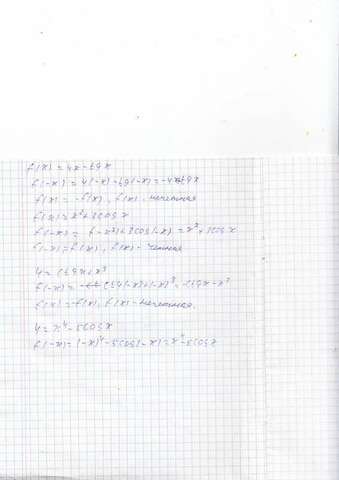 f(x) = 4x - tgx
f(-x) = 4(-x) - tg(-x) = -4x+tgx
f(x) = -f(x), f(x), нечетная
f(x) = x² + 3cos x
f(-x) = (-x²)+3cos(-x) = x² + 3cos x
f(-x) = f(x), f(x) - четная
y = ctgx+x³
f(-x) = ctg(-x)+(-x)³ = -ctgx - x³
f(x) = -f(x), f(x) - нечетная.
y = x⁴ - 5cos x
f(-x) = (-x)⁴ - 5cos(-x) = x⁴ - 5cos x